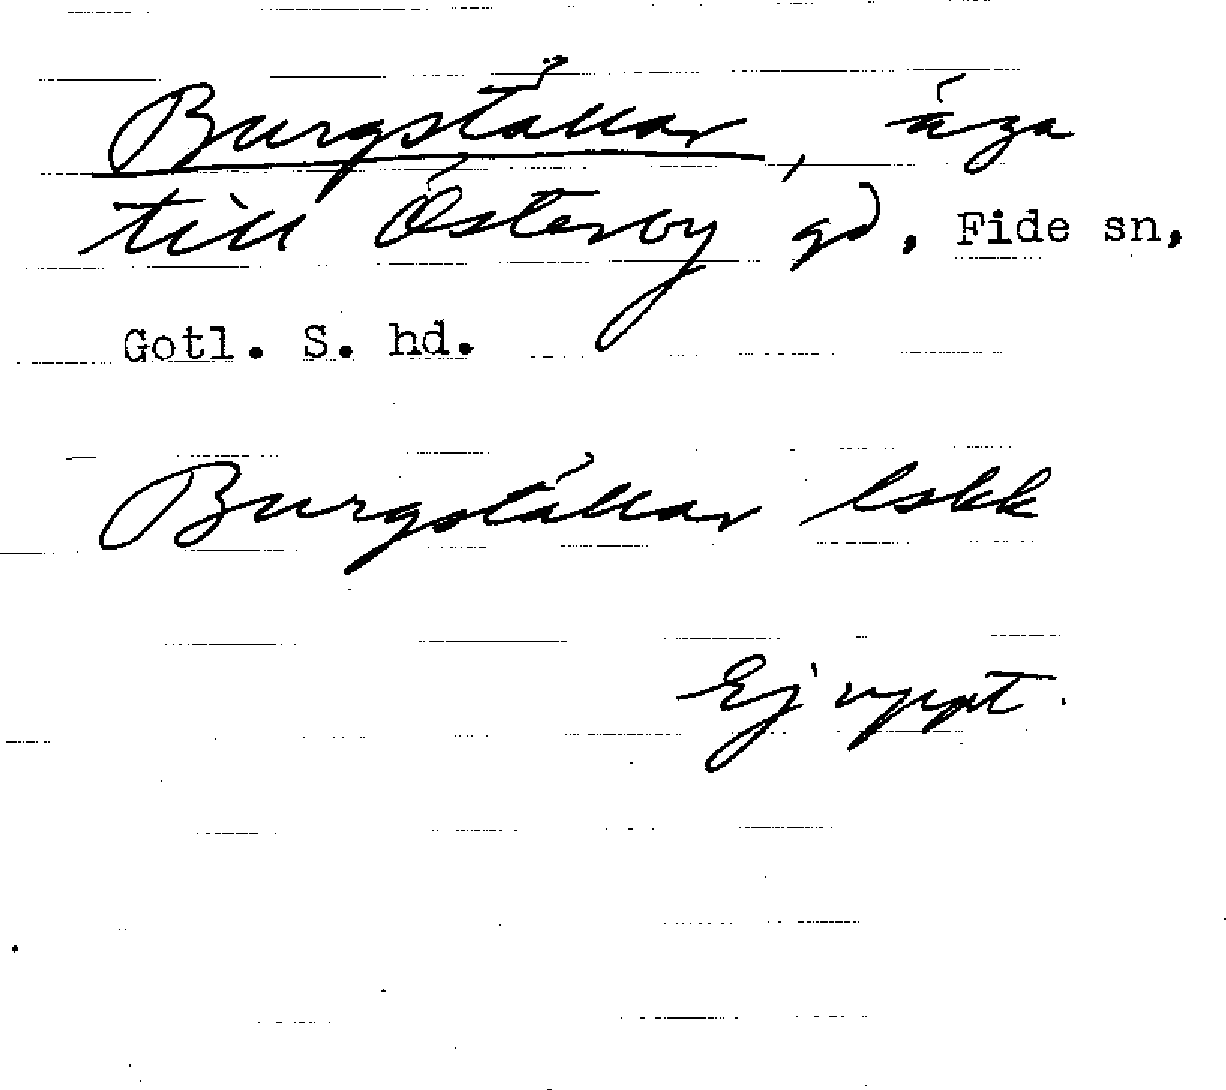 Burgställar, äga
till Österby gd, Fide sn,
Gotl. S. hd.
Burgställar lskk
Ej uppt.